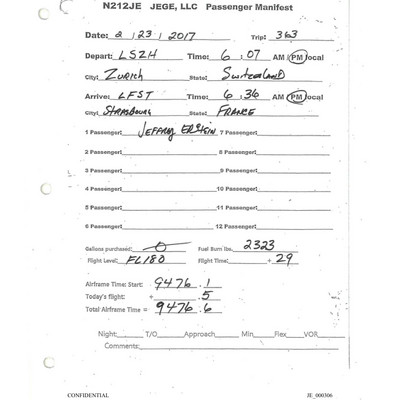 N212JE JEGE, LLC Passenger Manifest
Date: 2 / 23 / 2017 Trip: 363
Depart: LSZH Time: 6 : 07 AM / PM local
City: Zurich State: Switzerland
Arrive: LFST Time: 6 : 36 AM / PM local
City: Strasbourg State: France
1 Passenger: Jeffrey Epstein 7 Passenger:
2 Passenger: 8 Passenger:
3 Passenger: 9 Passenger:
4 Passenger: 10 Passenger:
5 Passenger: 11 Passenger:
6 Passenger: 12 Passenger:
Gallons purchased: 0 Fuel Burn lbs. 2323
Flight Level: FL180 Flight Time: + 29
Airframe Time: Start: 9476 . 1
Today's flight: + . 5
Total Airframe Time = 9476 . 6
Night: T/O Approach Min Flex VOR
Comments:
CONFIDENTIAL JE_000306